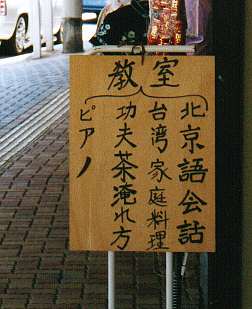 教室
北京語会話
台湾家庭料理
功夫茶淹れ方
ピアノ